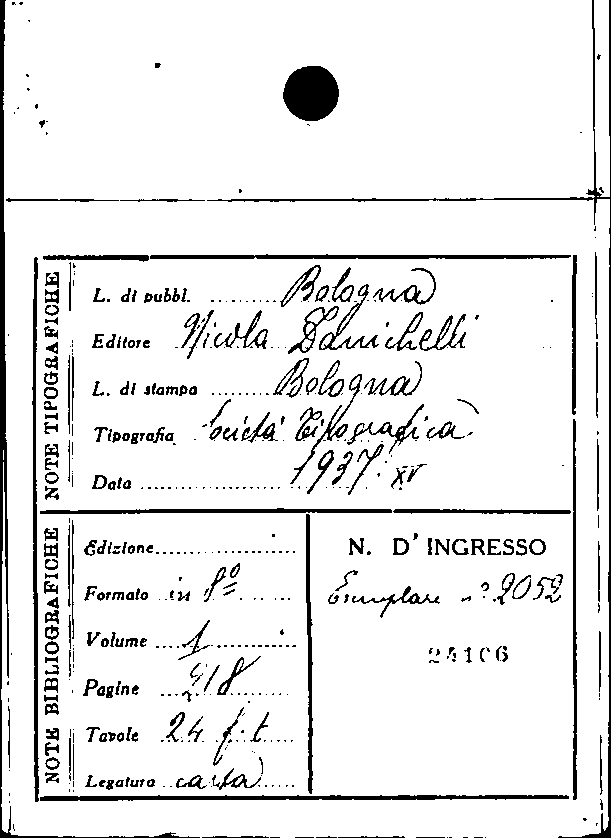 NOTE TIPOGRAFICHE
L. di pubbl. Bologna
Editore Nicola Zanichelli
L. di stampa Bologna
Tipografia Società Tipografica
Data 1937. XV
NOTE BIBLIOGRAFICHE
Edizione
Formato in 8º
Volume 1
Pagine 218
Tavole 24 f. t.
Legatura carta
N. D'INGRESSO
Esemplare nº 2052
24106